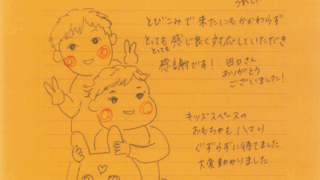 うれしい
とびこみで来たにもかかわらず
とっても感じ良く対応していただき
感謝です！
田口さん
ありがとう
ございました！
キッズスペースの
おもちゃも
ぐずらずに待てました
大変助かりました